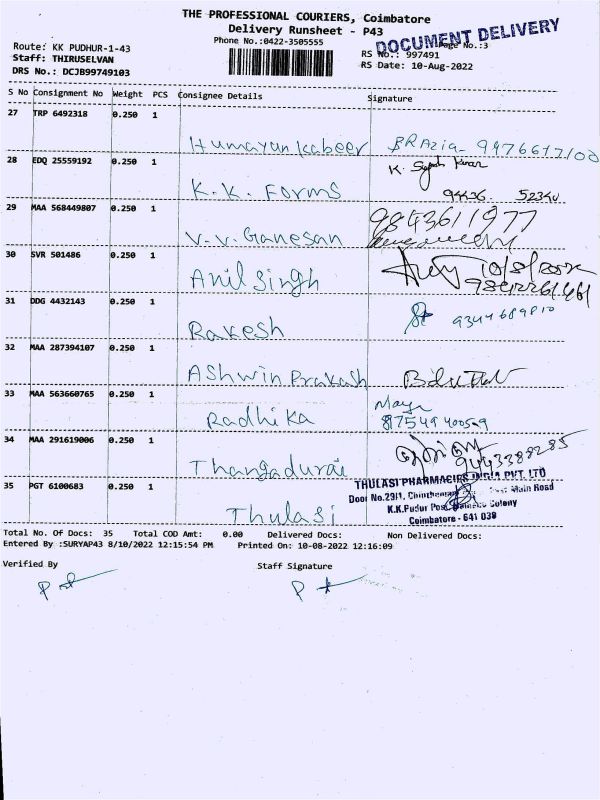 THE PROFESSIONAL COURIERS, Coimbatore
Delivery Runsheet - P43
Phone No.:0422-3505555
DOCUMENT DELIVERY
Page No.:3
Route: KK PUDHUR-1-43
Staff: THIRUSELVAN
DRS No.: DCJB99749103
RS No.: 997491
RS Date: 10-Aug-2022
S No Consignment No Weight PCS Consignee Details Signature
27 TRP 6492318 0.250 1
Humayun Kabeer
28 EDQ 25559192 0.250 1
K.K. Forms 94436 52340
29 MAA 568449807 0.250 1 9843611977
V.V. Ganesan
30 SVR 501486 0.250 1
Anil Singh
31 DDG 4432143 0.250 1
Rakesh 9344689810
32 MAA 287394107 0.250 1
Ashwin Prakash
33 MAA 563660765 0.250 1
Radhika
34 MAA 291619006 0.250 1
Thangadurai 9443388285
35 PGT 6100683 0.250 1
Thulasi
THULASI PHARMACIES INDIA PVT. LTD
Door No.29/1, Main Road
K.K.Pudur Post, Colony
Coimbatore - 641 038
Total No. Of Docs: 35 Total COD Amt: 0.00 Delivered Docs: Non Delivered Docs:
Entered By :SURYAP43 8/10/2022 12:15:54 PM Printed On: 10-08-2022 12:16:09
Verified By Staff Signature